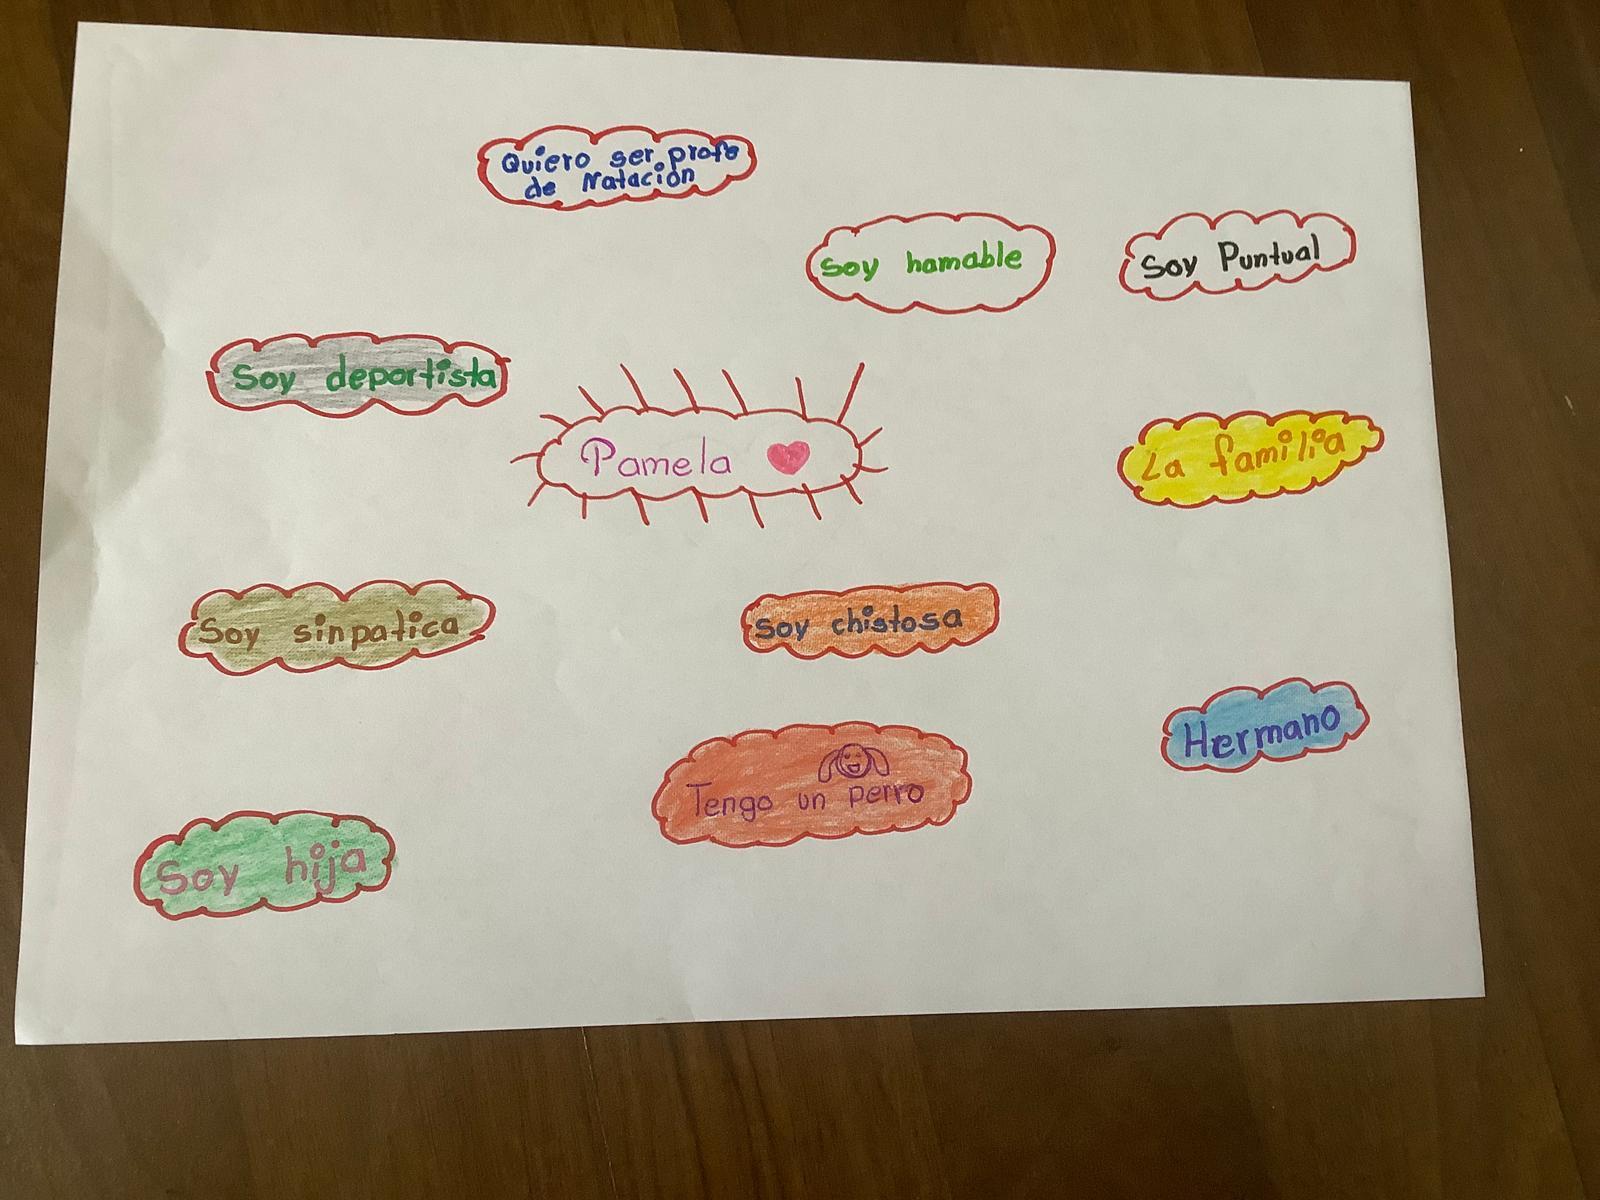 Quiero ser profe
de Natación
Soy hamable
Soy Puntual
Soy deportista
Pamela
La familia
Soy sinpatica
Soy chistosa
Hermano
Tengo un perro
Soy hija